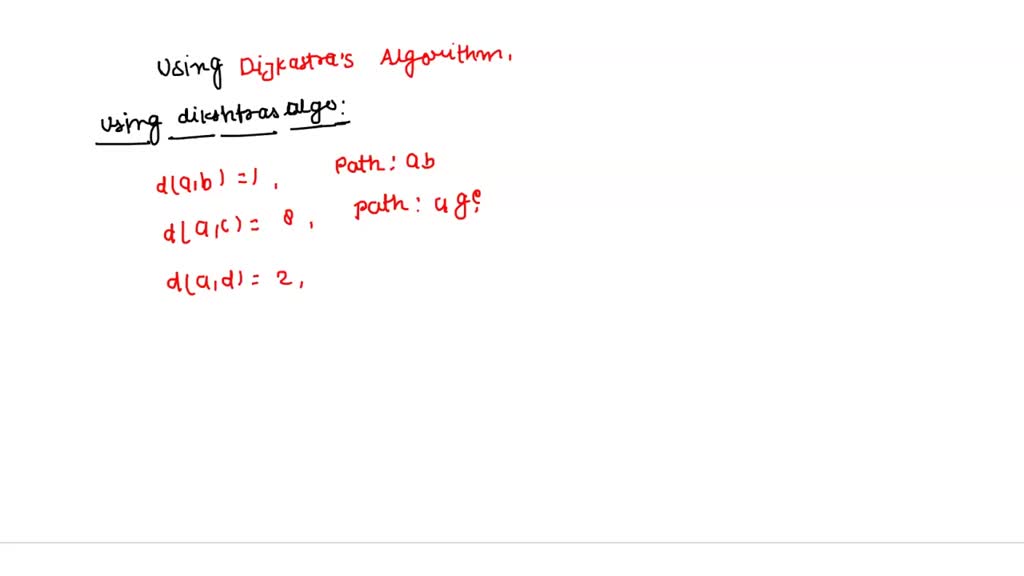 Using Dijkastra's Algorithm.
Using dikshtras algo:
d(a,b) = 1, Path: ab
d(a,c) = 8, Path: agc,
d(a,d) = 2,